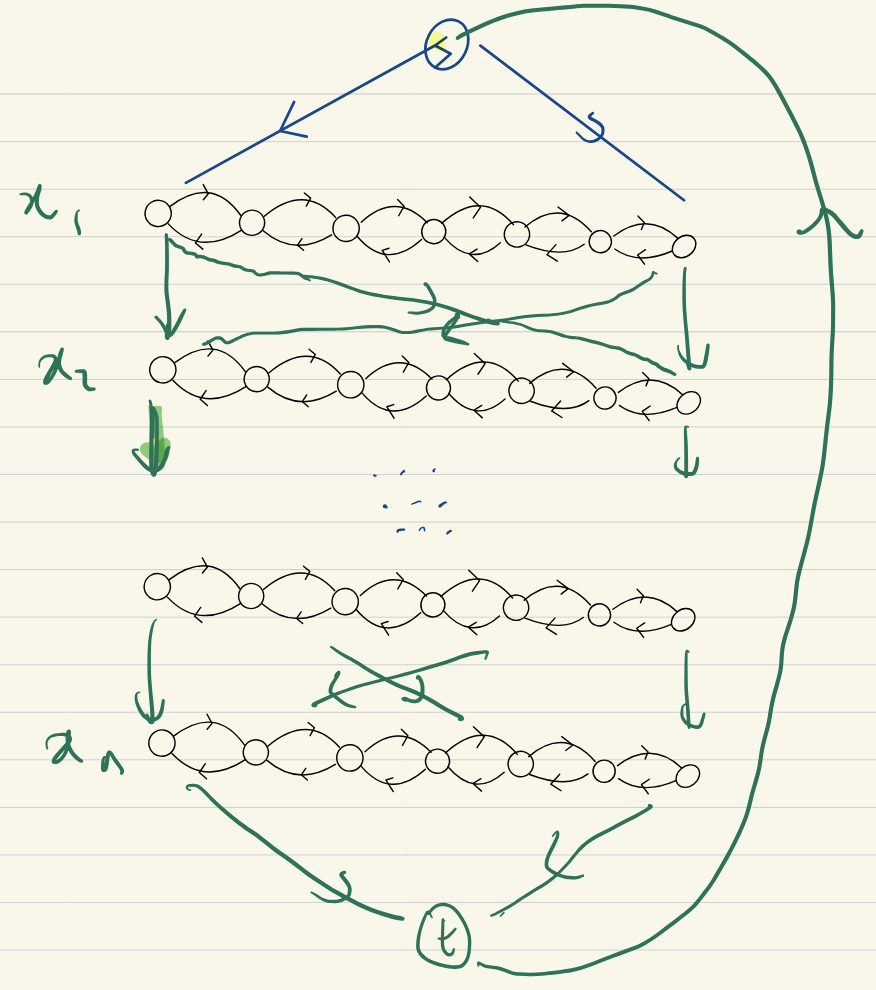 s
x1
x2
xn
t